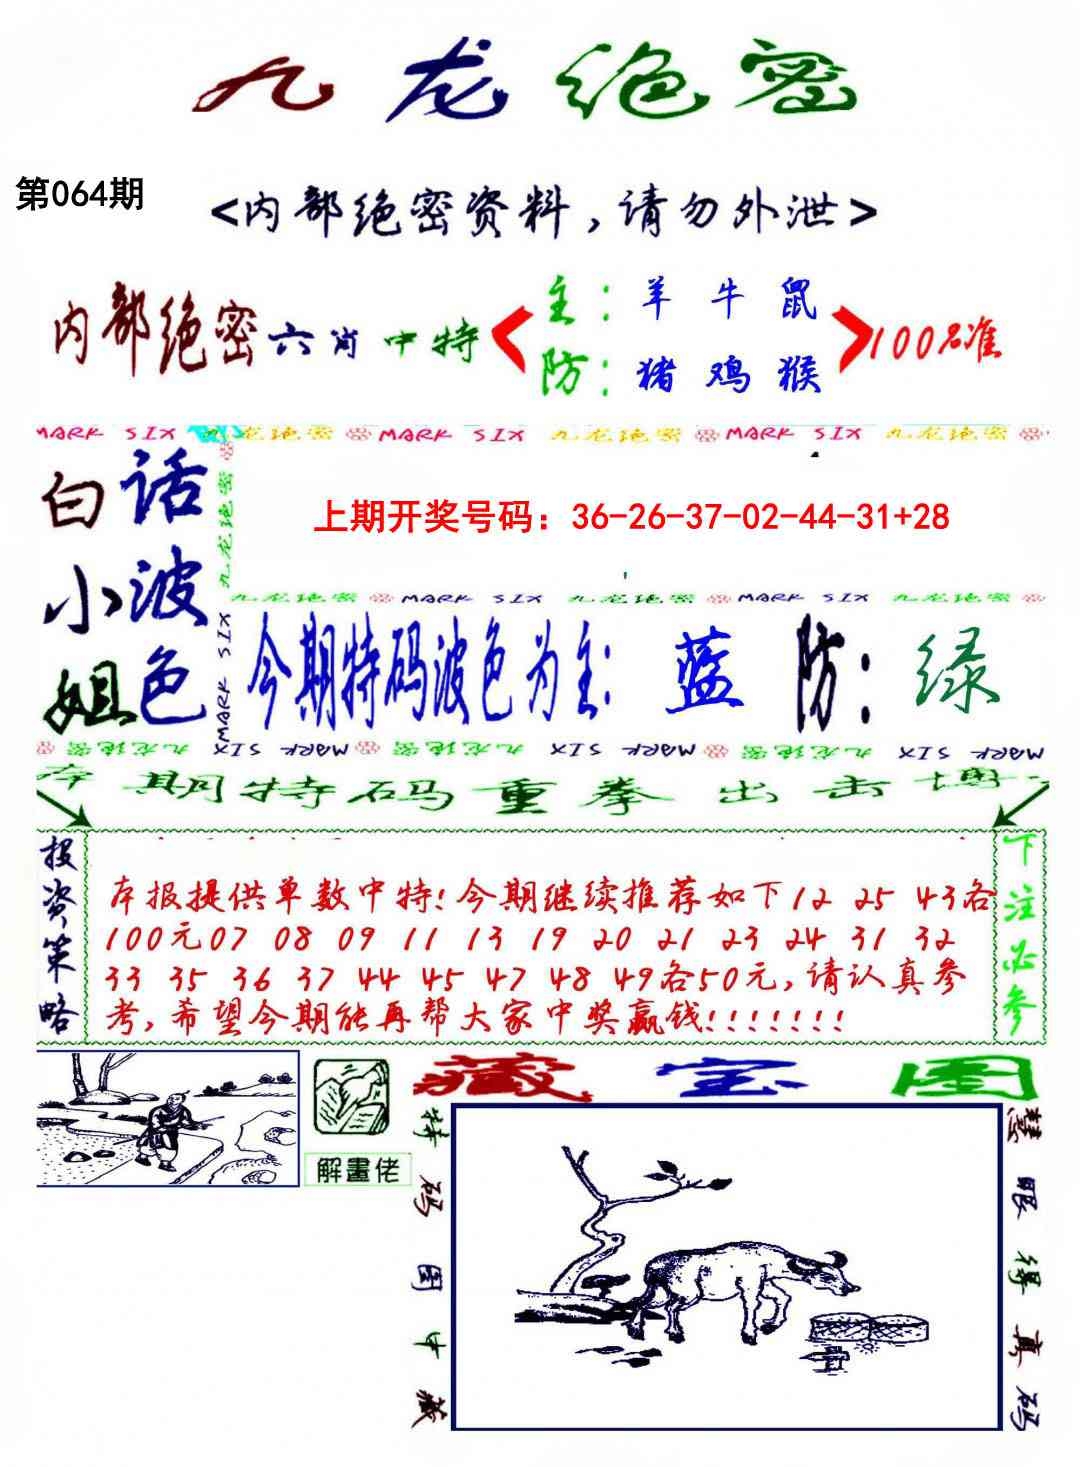 九龙绝密
第064期
<内部绝密资料，请勿外泄>
内部绝密六肖中特
主：羊 牛 鼠
防：猪 鸡 猴
100%准
MARK SIX 九龙绝密 MARK SIX 九龙绝密 MARK SIX 九龙绝密
白小姐
话波色
九龙绝密
MARK SIX
上期开奖号码：36-26-37-02-44-31+28
九龙绝密 MARK SIX 九龙绝密 MARK SIX 九龙绝密
今期特码波色为主：蓝 防：绿
九龙绝密 MARK SIX 九龙绝密 MARK SIX 九龙绝密 MARK SIX
本期特码重拳出击博
投资策略
本报提供单数中特！今期继续推荐如下12 25 43各
100元07 08 09 11 13 19 20 21 23 24 31 32
33 35 36 37 44 45 47 48 49各50元，请认真参
考，希望今期能再帮大家中奖赢钱！！！！！！！
下注必参
解畫佬
藏宝图
特码图中藏
慧眼得真码